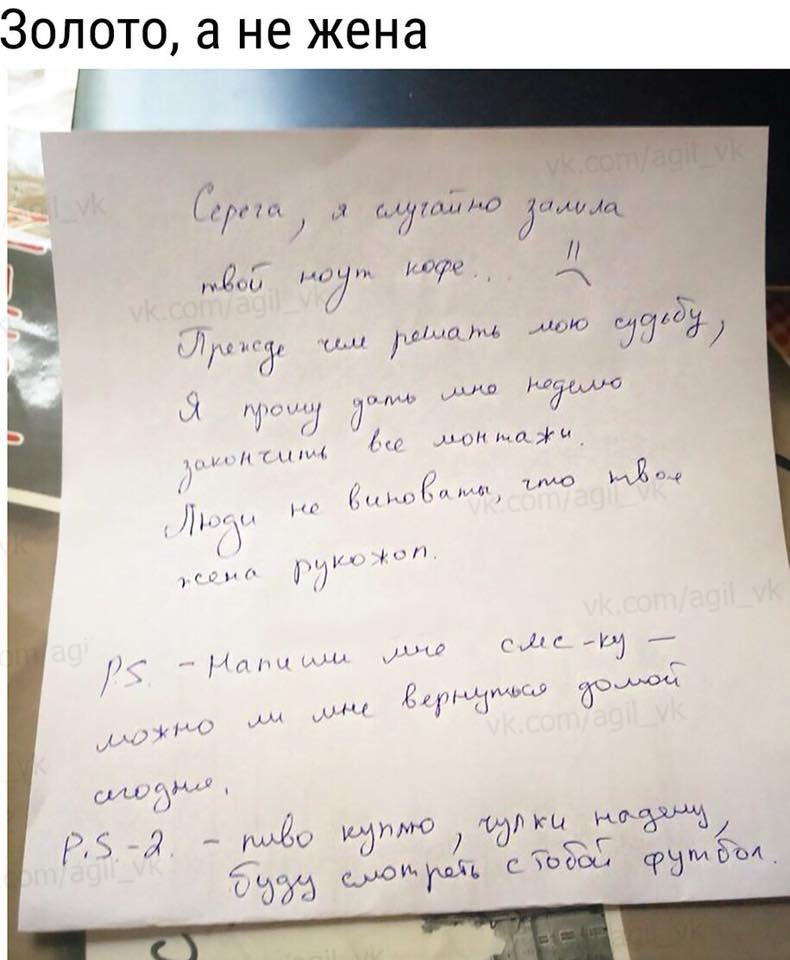 Золото, а не жена
Серега, я случайно залила
твой ноут кофе... =(
Прежде чем решать мою судьбу,
Я прошу дать мне неделю
закончить все монтажи.
Люди не виноваты, что твоя
жена рукожоп.
P.S. - Напиши мне смс-ку -
можно ли мне вернуться домой
сегодня.
P.S-2. - пиво куплю, чулки надену,
буду смотреть с тобой футбол.
vk.com/agil_vk
vk.com/agil_vk
vk.com/agil_vk
vk.com/agil_vk
vk.com/agil_vk